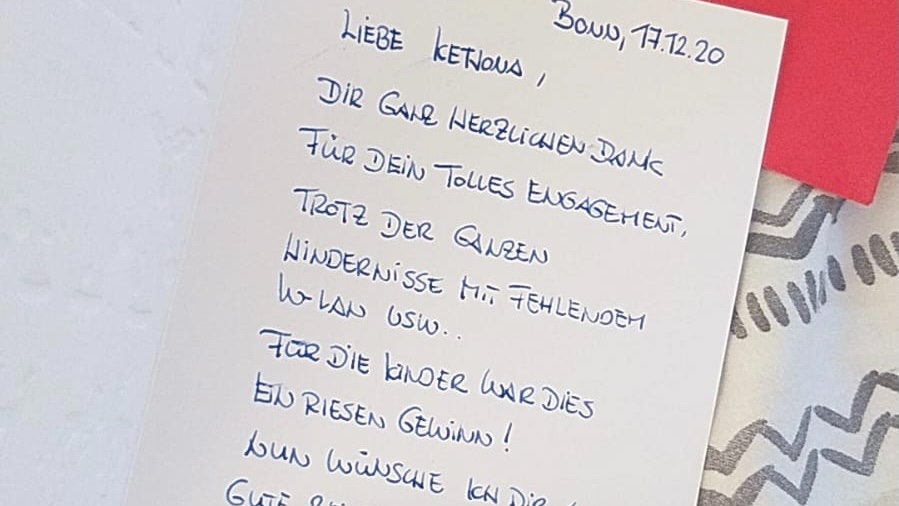 BONN, 17.12.20
LIEBE KETJONA,
DIR GANZ HERZLICHEN DANK
FÜR DEIN TOLLES ENGAGEMENT,
TROTZ DER GANZEN
HINDERNISSE MIT FEHLENDEM
W-LAN USW..
FÜR DIE KINDER WAR DIES
EIN RIESEN GEWINN!
NUN WÜNSCHE ICH DIR
GUTE